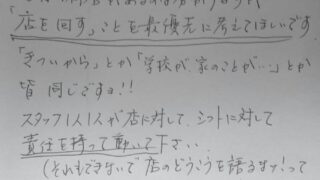 「店を回す」ことを最優先に考えてほしいです
「きついから」とか「学校が、家のことが…」とか
皆 同じですョ!!
スタッフ1人1人が店に対して、シフトに対して
責任を持って動いて下さい。
(それもできないで店のどうこうを語るなァ!って